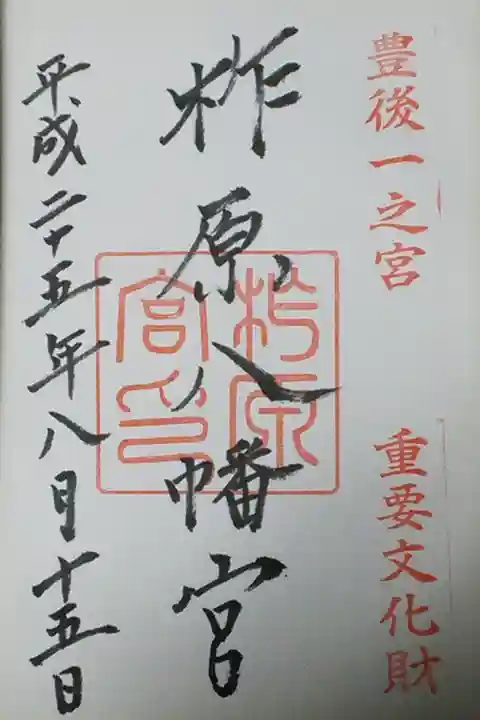 豊後一之宮
重要文化財
柞原八幡宮
柞原宮印
平成二十五年八月十五日